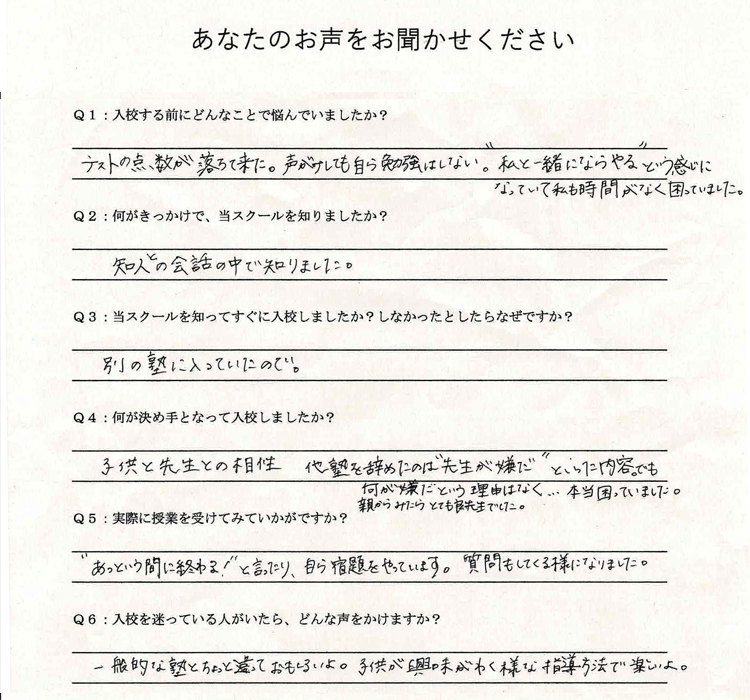 あなたのお声をお聞かせください
Q1：入校する前にどんなことで悩んでいましたか？
テストの点数が落ちて来た。声がけしても自ら勉強はしない。"私と一緒にならやる"という感じに
なっていて私も時間がなく困っていました。
Q2：何がきっかけで、当スクールを知りましたか？
知人との会話の中で知りました。
Q3：当スクールを知ってすぐに入校しましたか？しなかったとしたらなぜですか？
別の塾に入っていたので。
Q4：何が決め手となって入校しましたか？
子供と先生との相性　他塾を辞めたのは"先生が嫌だ"といった内容。でも
何が嫌だという理由はなく…本当困っていました。
親からみたらとても良先生でした。
Q5：実際に授業を受けてみていかがですか？
"あっという間に終わる！"と言ったり、自ら宿題をやっています。質問もしてくる様になりました。
Q6：入校を迷っている人がいたら、どんな声をかけますか？
一般的な塾とちょっと違っておもしろいよ。子供が興味がわく様な指導方法で楽しいよ。